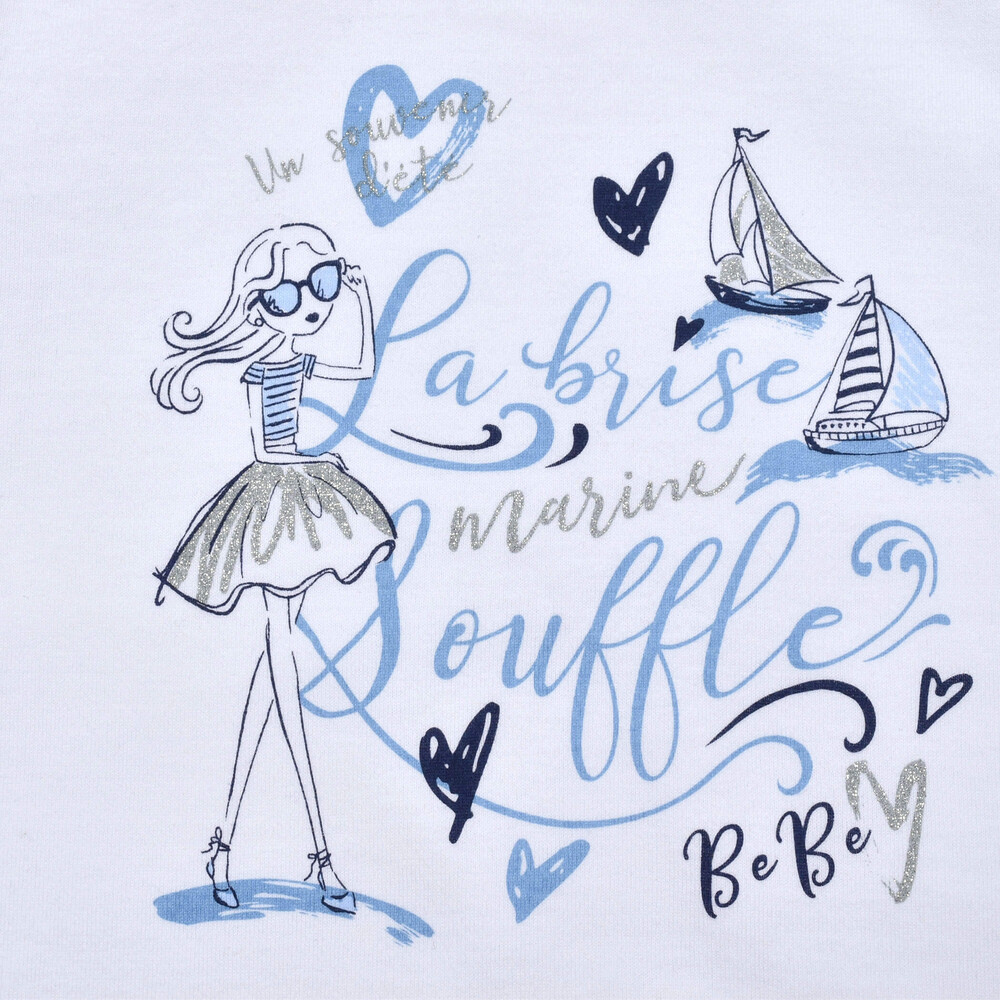 Un souvenir
d'été
La brise
Marine
Souffle
BeBeY